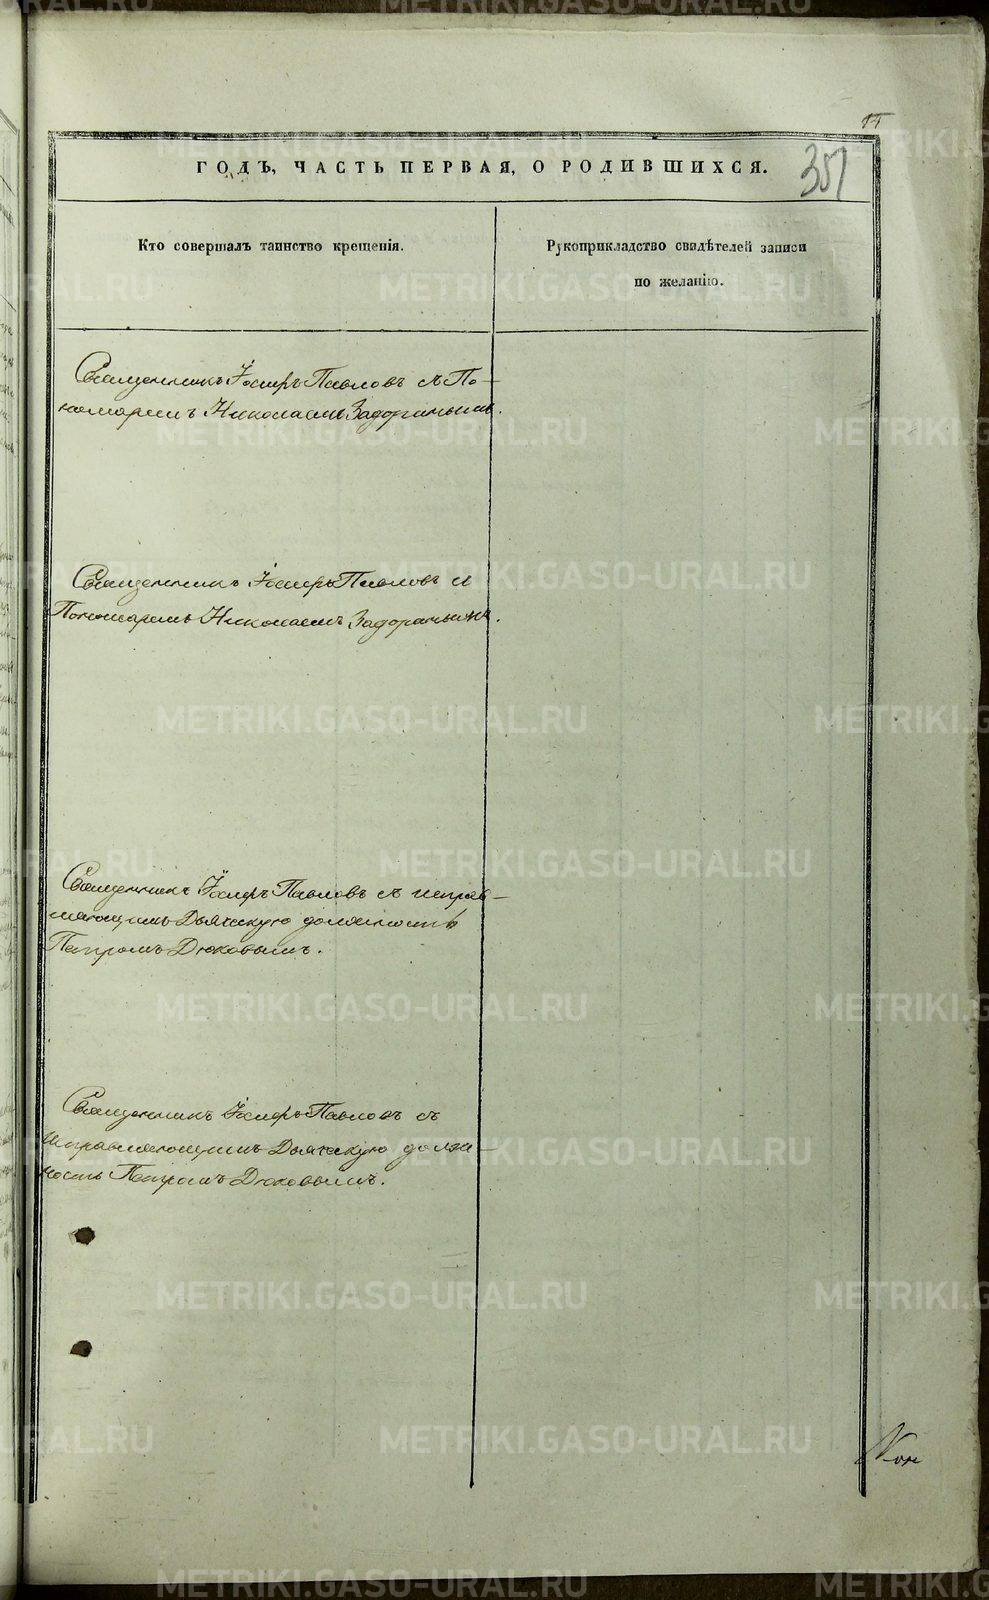 11
351
ГОДЪ, ЧАСТЬ ПЕРВАЯ, О РОДИВШИХСЯ.
Кто совершалъ таинство крещенія.
Рукоприкладство свидѣтелей записи
по желанію.
Священникъ Іосифъ Павловъ съ По-
номаремъ Николаемъ Задоринымъ.
Священникъ Іосифъ Павловъ и
Пономаремъ Николаемъ Задоринымъ.
Священникъ Іосифъ Павловъ съ исправ-
ляющимъ Дьячкую должность
Петромъ Дюковымъ.
Священникъ Іосифъ Павловъ съ
Исправляющимъ Дьячскую долж-
ность Петромъ Дюковымъ.
METRIKI.GASO-URAL.RU